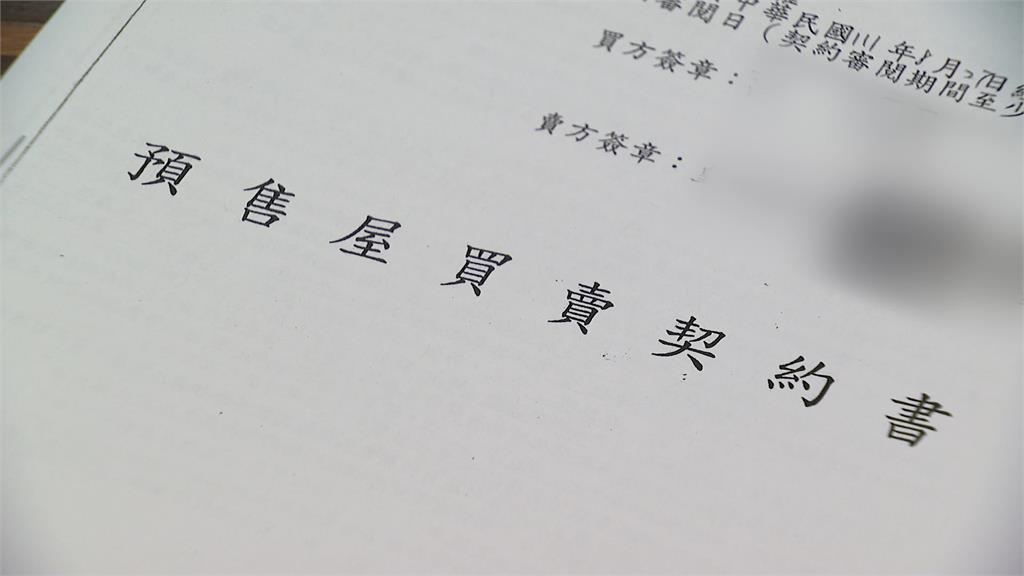 中華民國111年1月27日經
審閱日（契約審閱期間至少
買方簽章：
賣方簽章：
預售屋買賣契約書